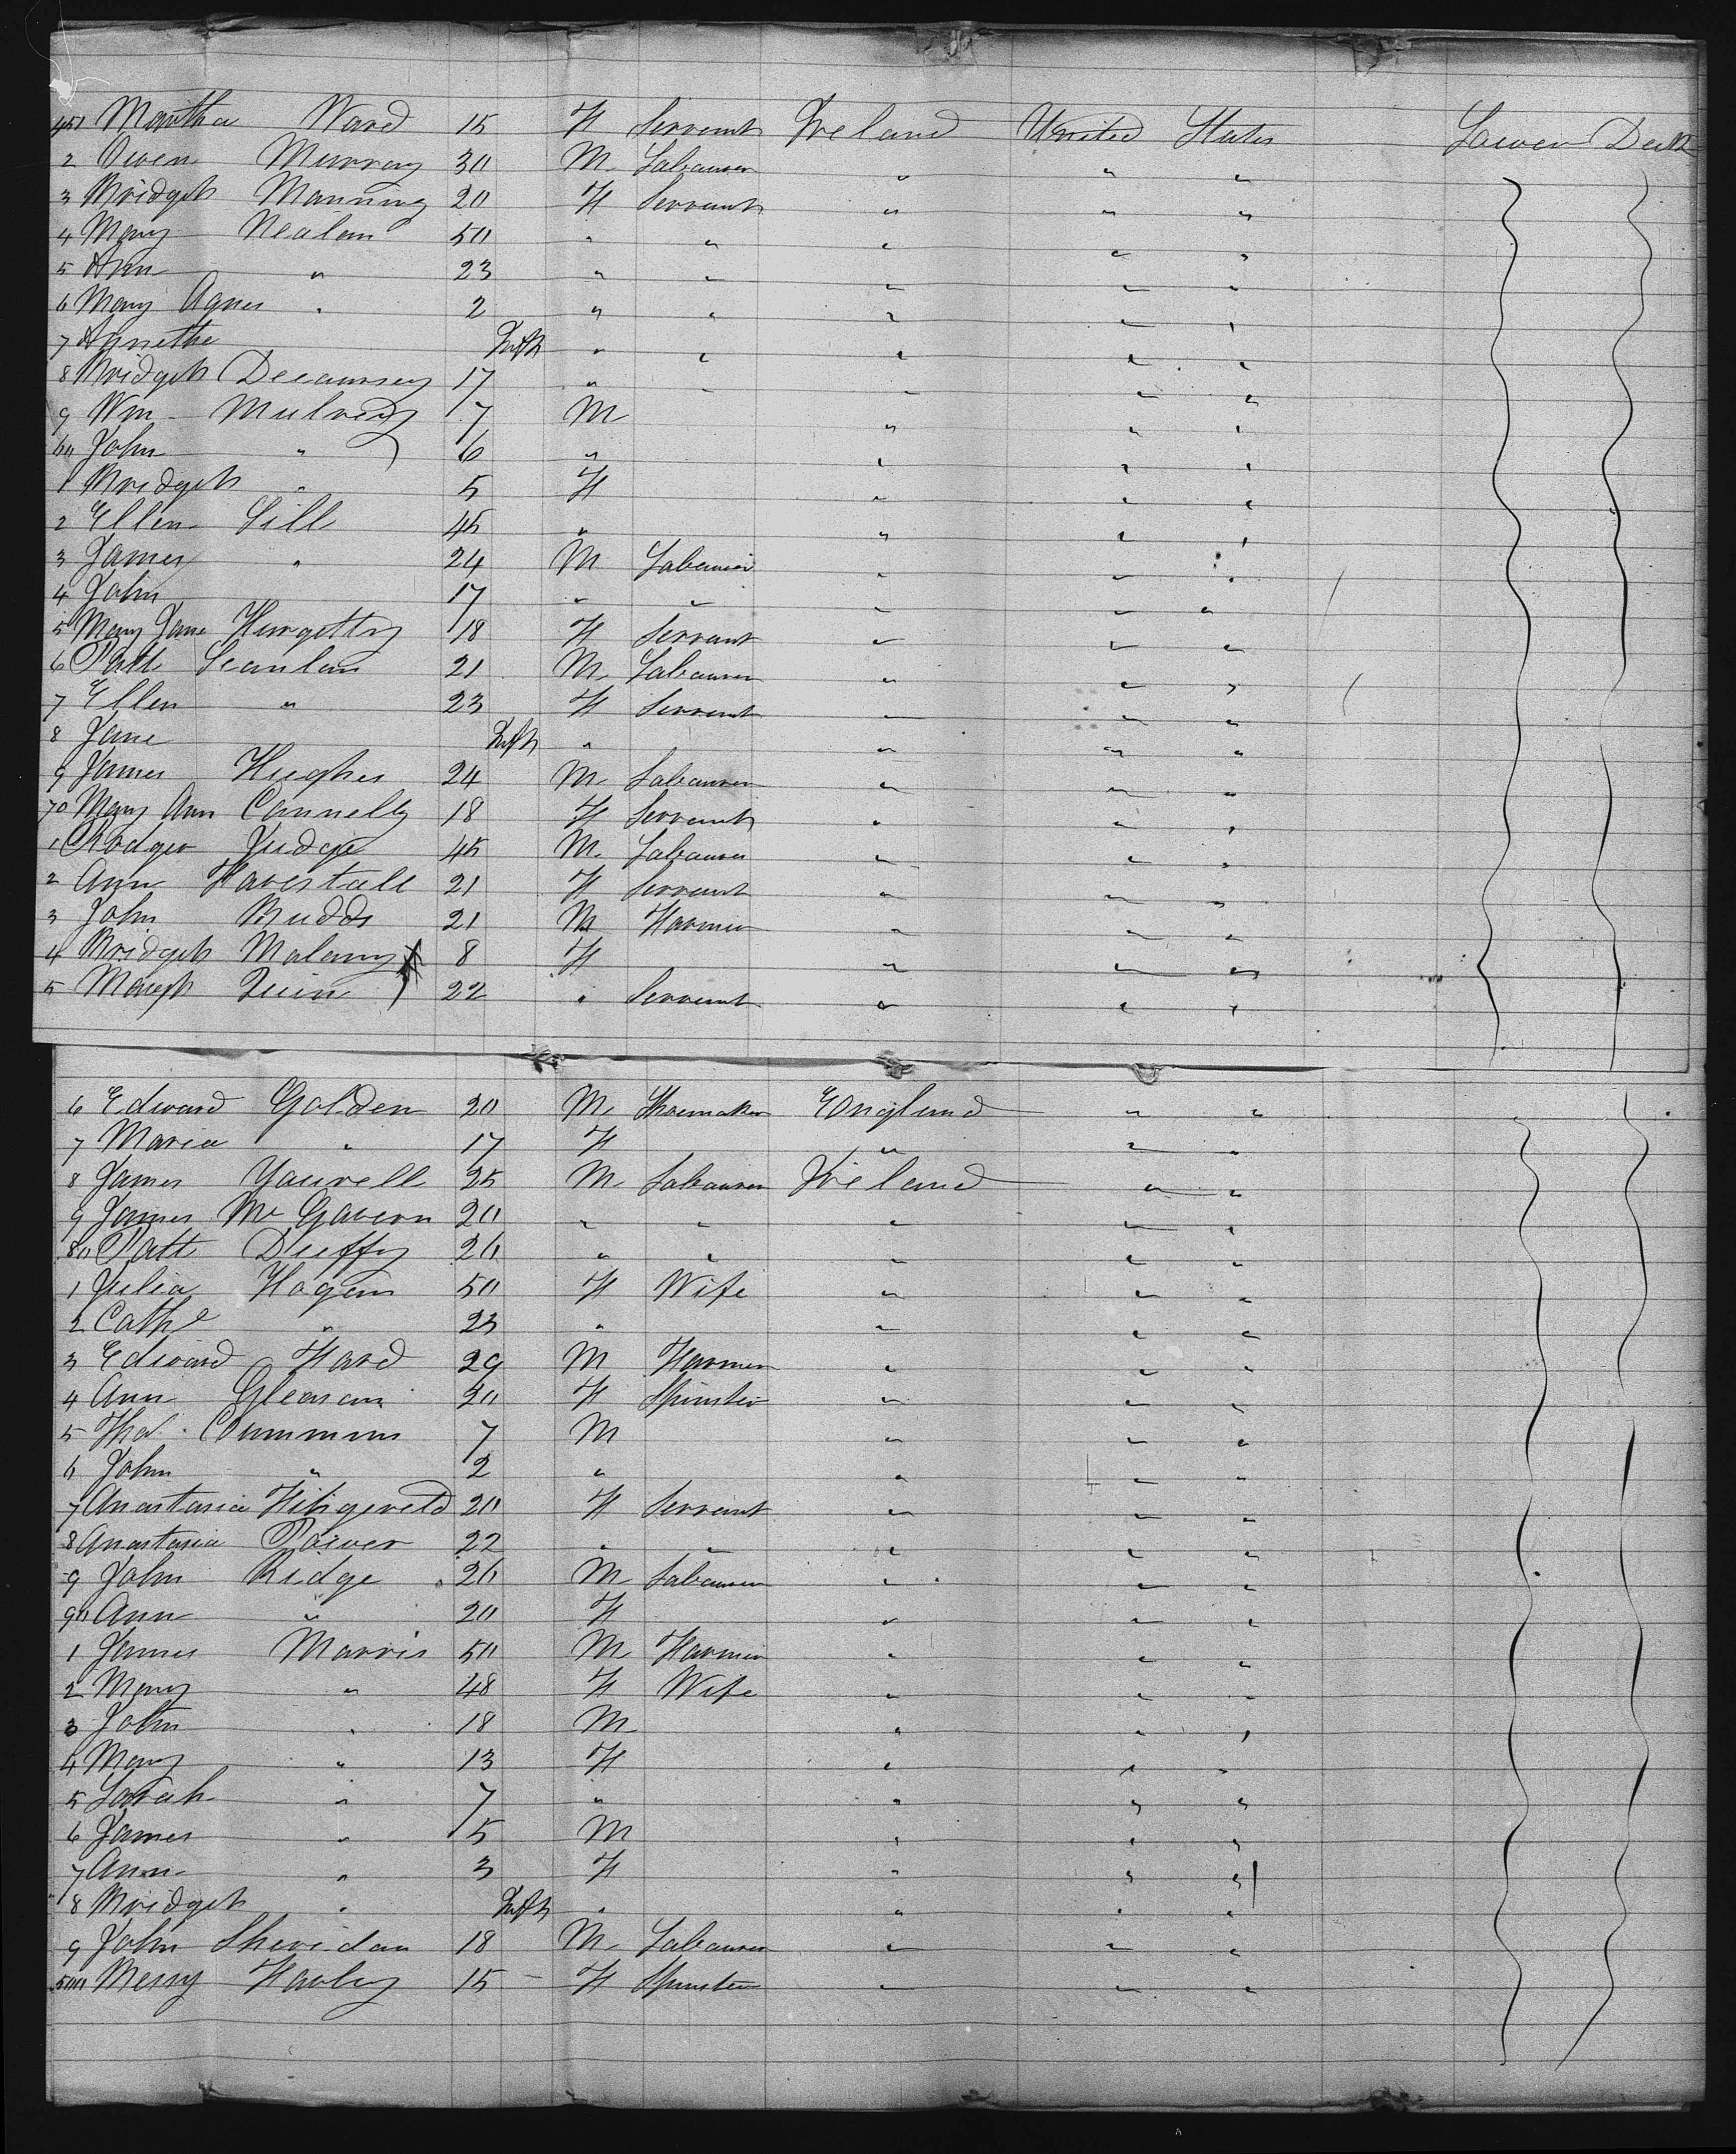 451 Martha Ward 15 F Servant Ireland United States Lower Deck
2 Owen Murray 30 M Labourer " " "
3 Bridget Manning 20 F Servant " " "
4 Mary Nealan 50 " " " " "
5 Ann " 23 " " " " "
6 Mary Agnes " 2 " " " " "
7 Agnethe Inft " " " " "
8 Bridget 17 " " " " "
9 Wm Mulredy 7 M " " "
60 John " 6 " " " "
1 Bridget " 5 F " " "
2 Ellen Gill 45 " " " "
3 James " 24 M Labourer " " "
4 John 17 " " " " "
5 Mary Jane 18 F Servant " " "
6 Patt Scanlan 21 M Labourer " " "
7 Ellen " 23 F Servant " " "
8 Jane Inft " " " "
9 James Hughes 24 M Labourer " " "
70 Mary Ann Connelly 18 F Servant " " "
1 Rodger Judge 45 M Labourer " " "
2 Ann 21 F Servant " " "
3 John Budds 21 M Farmer " " "
4 Bridget Malony 8 F " " "
5 Margt Quin 22 " Servant " " "
6 Edward Golden 20 M Shoemaker England " "
7 Maria " 17 F " " "
8 James Yourell 25 M Labourer Ireland " "
9 James McGavern 20 " " " " "
80 Patt Duffy 26 " " " " "
1 Julia Hogan 50 F Wife " " "
2 Cathe " 23 " " " "
3 Edward Ford 29 M Farmer " " "
4 Ann Gleason 20 F Spinster " " "
5 Thos Cummins 7 M " " "
6 John " 2 " " " "
7 Anastasia Fitzgereld 20 F Servant " " "
8 Anastasia Power 22 " " " " "
9 John Ridge 26 M Labourer " " "
90 Ann " 20 F " " "
1 James Morris 50 M Farmer " " "
2 Mary " 48 F Wife " " "
3 John " 18 M " " "
4 Mary " 13 F " " "
5 Sarah " 7 " " " "
6 James " 5 M " " "
7 Ann " 3 F " " "
8 Bridget " Inft " " " "
9 John Sheridan 18 M Labourer " " "
500 Messy 15 F Spinster " " "